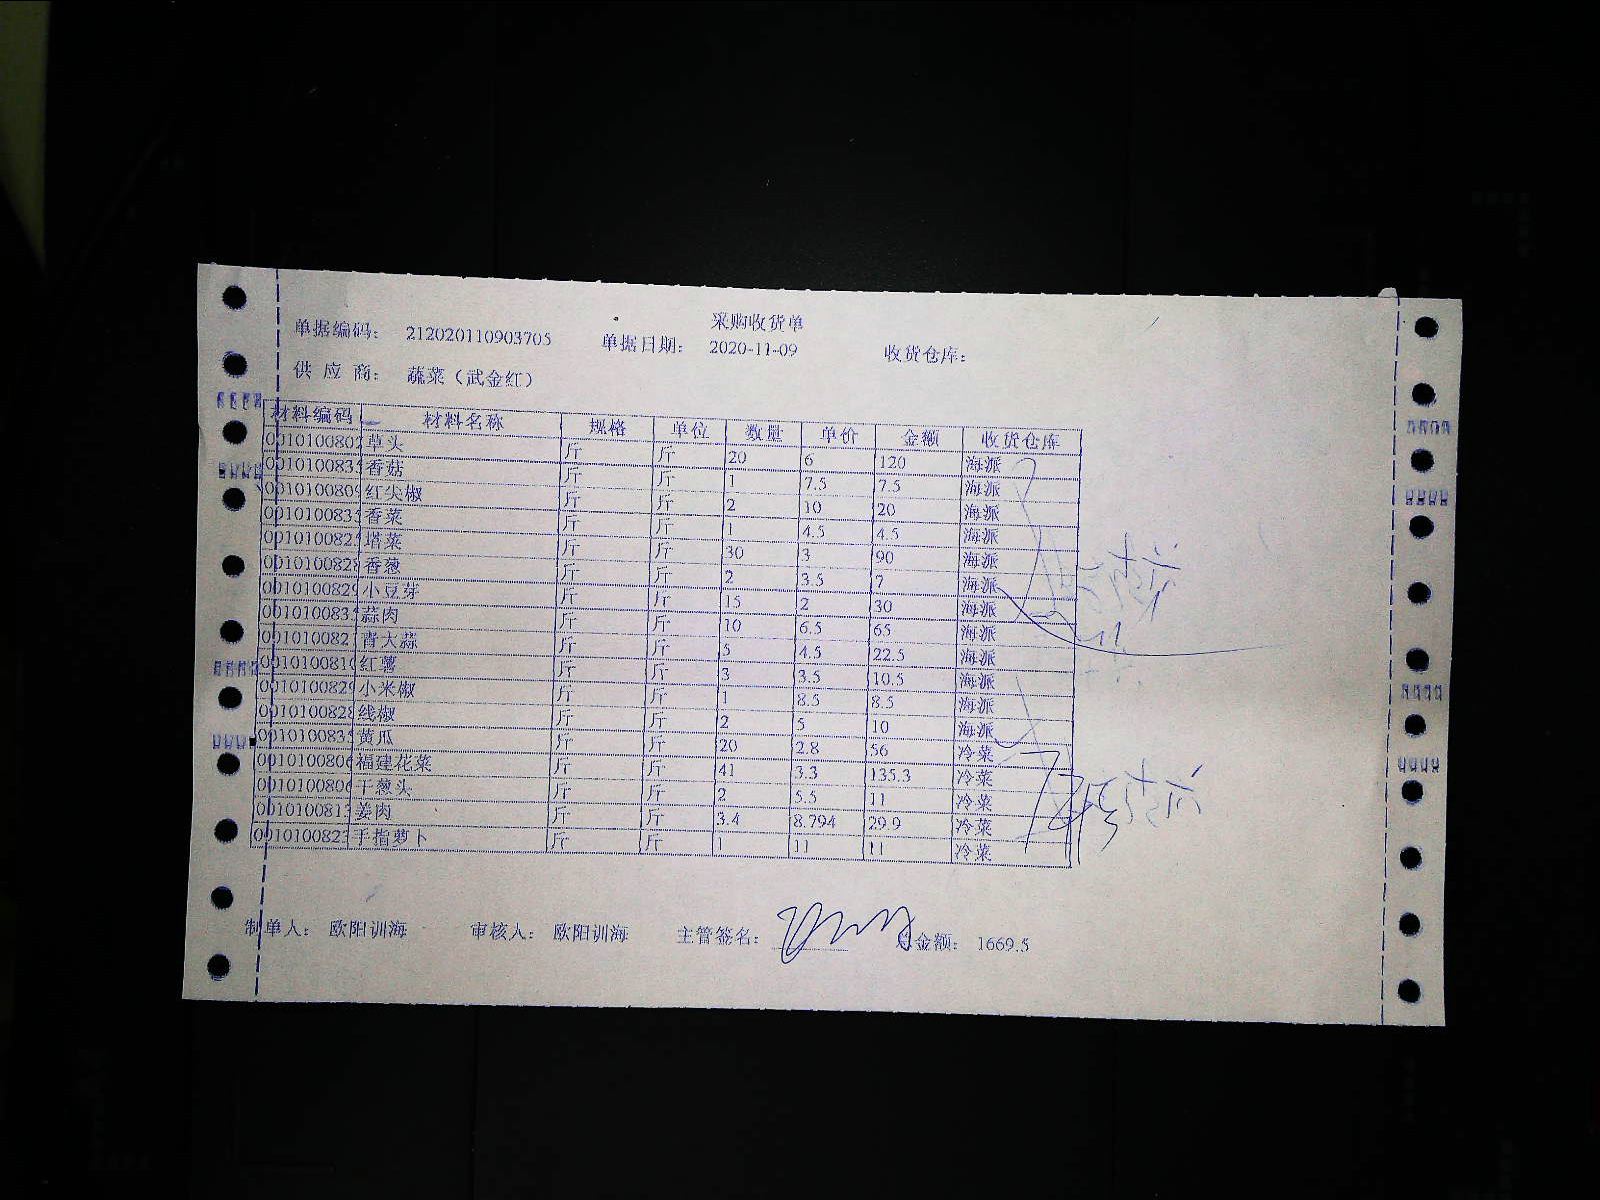 采购收货单
单据编码： 212020110903705 单据日期： 2020-11-09 收货仓库：
供 应 商： 蔬菜（武金红）
材料编码 材料名称 规格 单位 数量 单价 金额 收货仓库
0010100802 草头 斤 斤 20 6 120 海派
001010083 香菇 斤 斤 1 7.5 7.5 海派
001010080 红尖椒 斤 斤 2 10 20 海派
001010083 香菜 斤 斤 1 4.5 4.5 海派
001010082 塔菜 斤 斤 30 3 90 海派
001010082 香葱 斤 斤 2 3.5 7 海派
001010082 小豆芽 斤 斤 15 2 30 海派
001010083 蒜肉 斤 斤 10 6.5 65 海派
001010082 青大蒜 斤 斤 5 4.5 22.5 海派
001010081 红薯 斤 斤 3 3.5 10.5 海派
001010082 小米椒 斤 斤 1 8.5 8.5 海派
001010082 线椒 斤 斤 2 5 10 海派
001010083 黄瓜 斤 斤 20 2.8 56 冷菜
001010080 福建花菜 斤 斤 41 3.3 135.3 冷菜
001010080 干葱头 斤 斤 2 5.5 11 冷菜
001010081 姜肉 斤 斤 3.4 8.794 29.9 冷菜
001010082 手指萝卜 斤 斤 1 11 11 冷菜
制单人： 欧阳训海 审核人： 欧阳训海 主管签名： 总金额： 1669.5